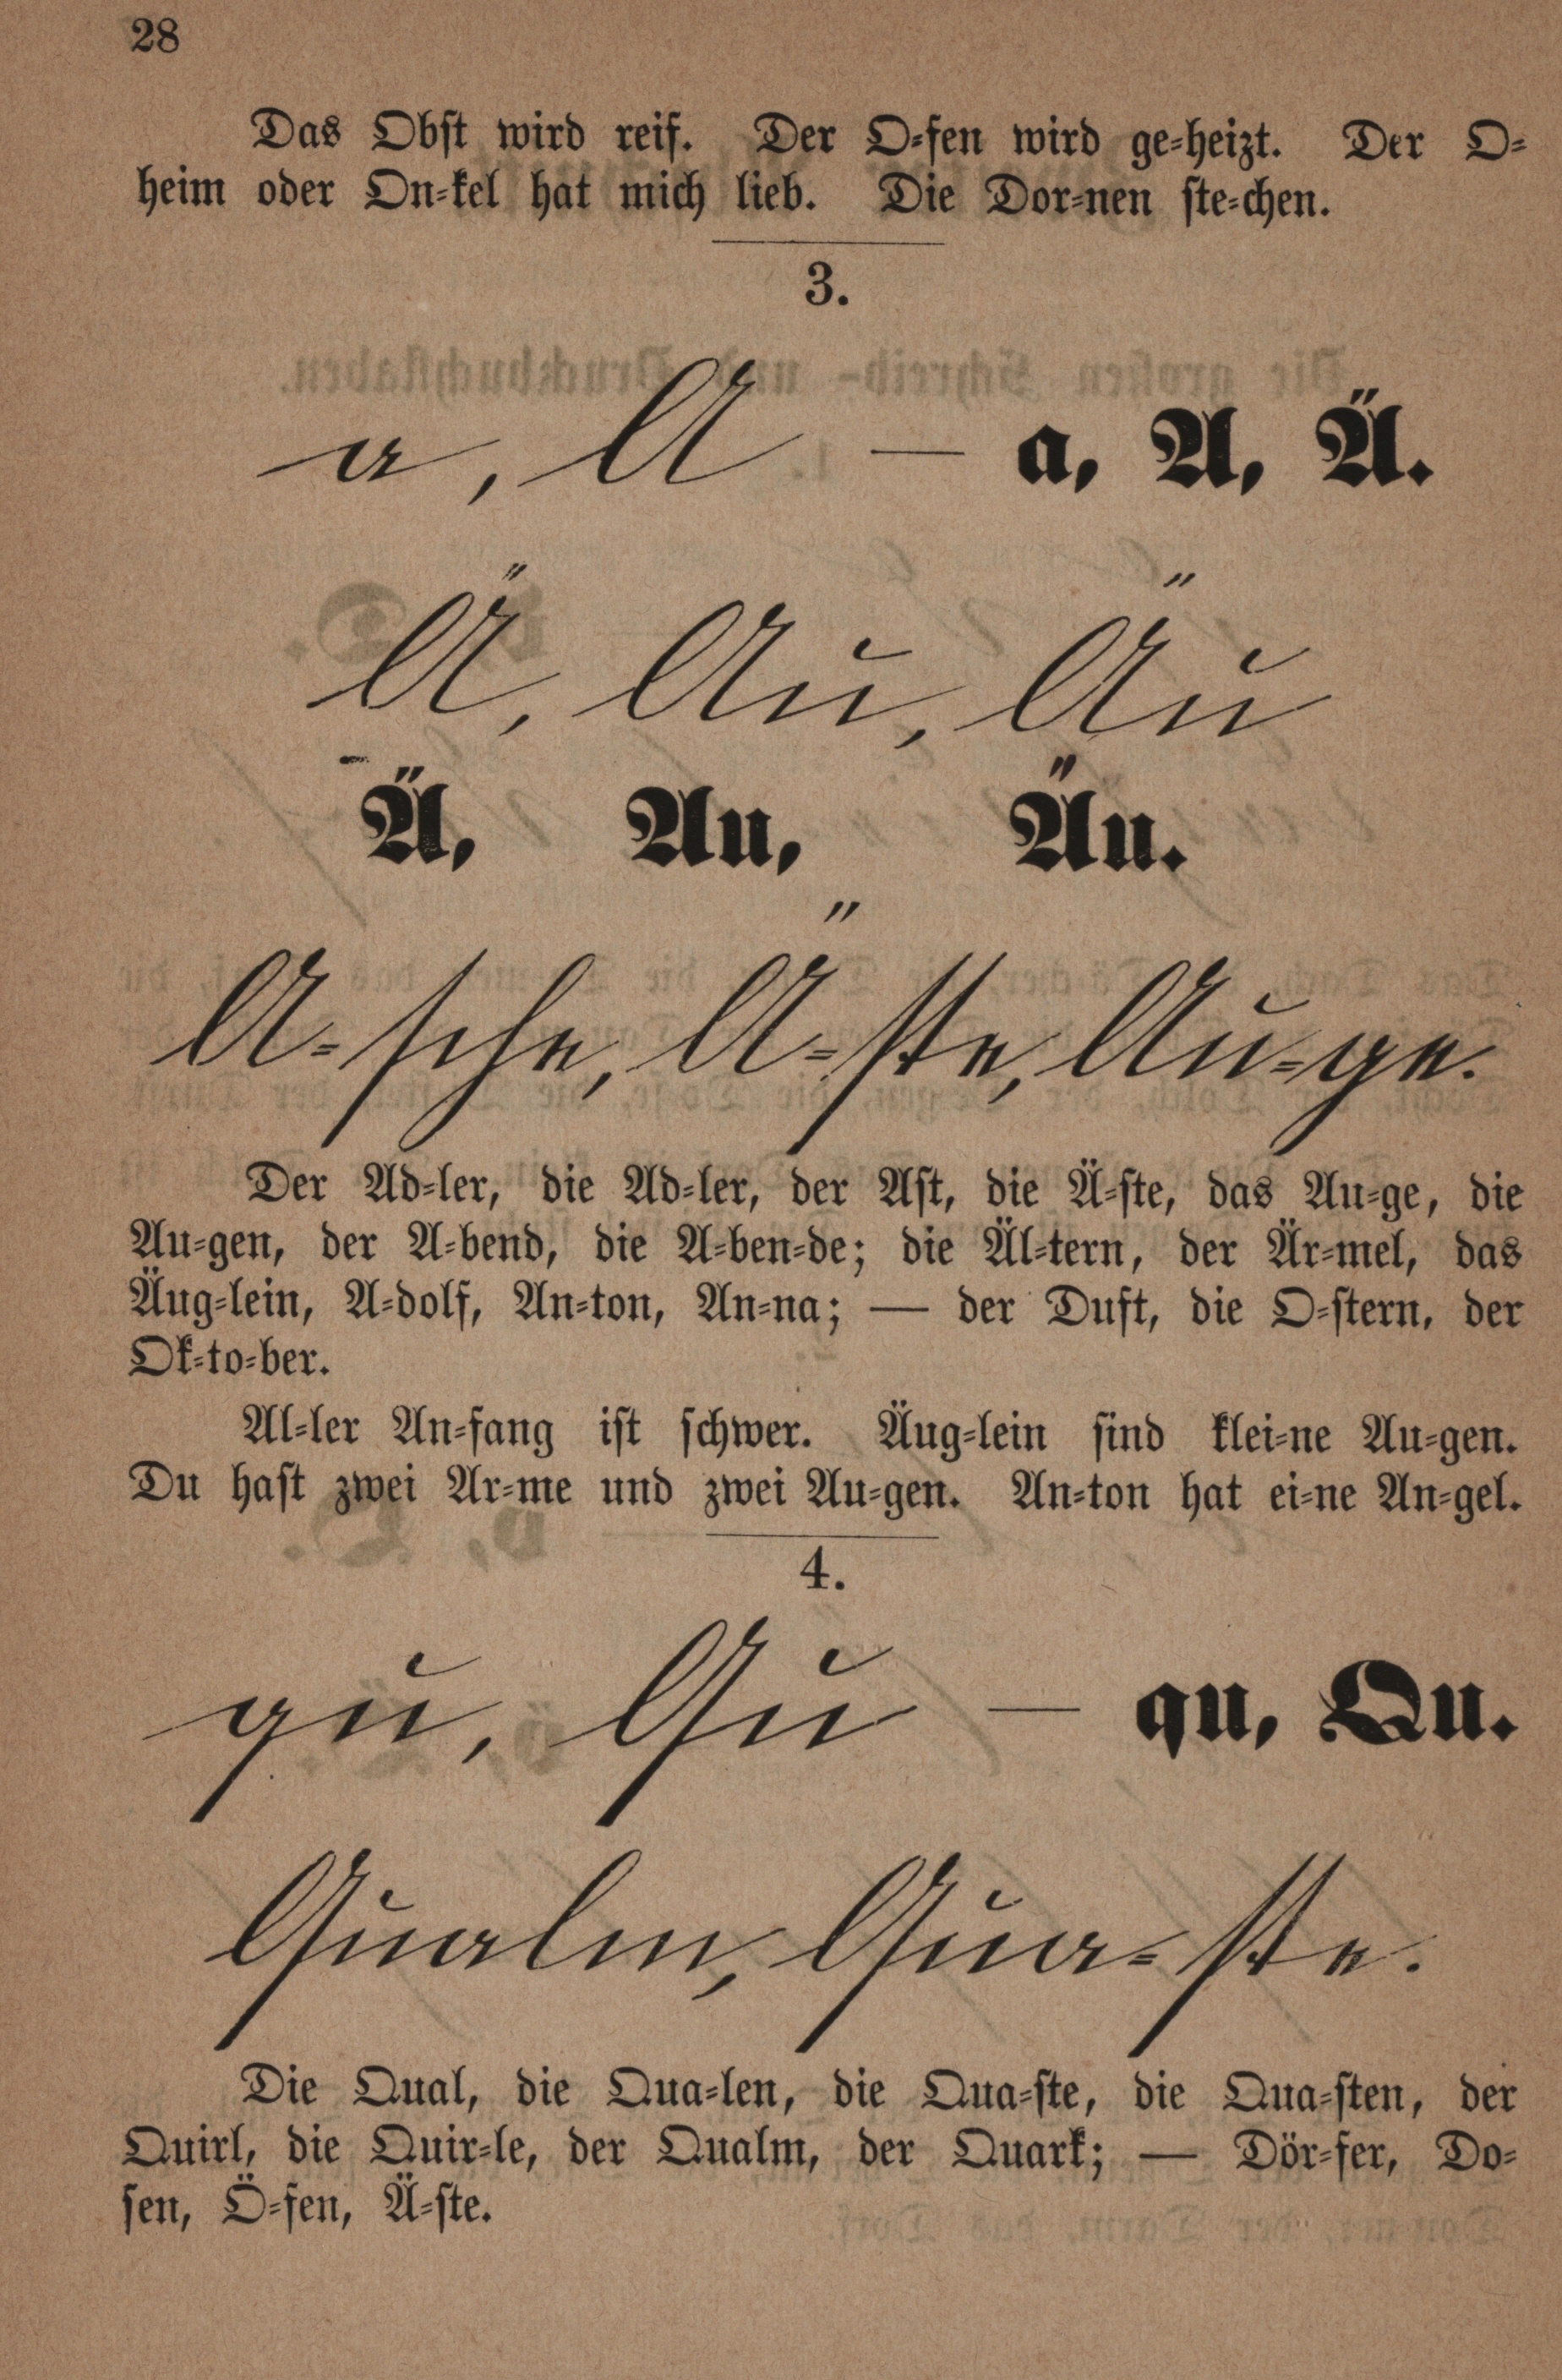 28
Das Obst wird reif. Der O=fen wird ge=heizt. Der O=
heim oder On=kel hat mich lieb. Die Dor=nen ste=chen.
3.
a, A — a, A, Ä.
Ä, Au, Äu
Ä, Au, Äu.
A=sche, Ä=ste, Au=ge.
Der Ad=ler, die Ad=ler, der Ast, die Ä=ste, das Au=ge, die
Au=gen, der A=bend, die A=ben=de; die Äl=tern, der Är=mel, das
Äug=lein, A=dolf, An=ton, An=na; — der Duft, die O=stern, der
Ok=to=ber.
Al=ler An=fang ist schwer. Äug=lein sind klei=ne Au=gen.
Du hast zwei Ar=me und zwei Au=gen. An=ton hat ei=ne An=gel.
4.
qu, Qu — qu, Qu.
Qualm, Qua=ste.
Die Qual, die Qua=len, die Qua=ste, die Qua=sten, der
Quirl, die Quir=le, der Qualm, der Quark; — Dör=fer, Do=
sen, Ö=fen, Ä=ste.